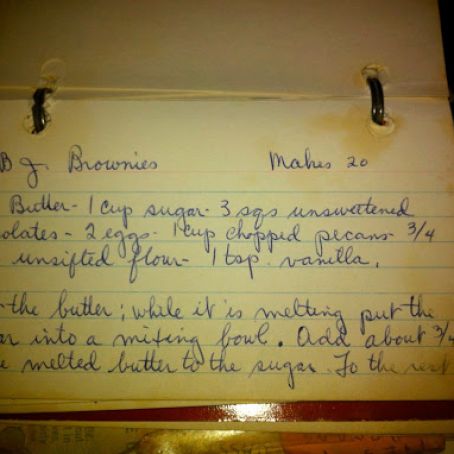 B J. Brownies Makes 20
Butter - 1 cup sugar - 3 sqs unsweetened
olates - 2 eggs - 1 cup chopped pecans - 3/4
unsifted flour - 1 tsp. vanilla.
the butter; while it is melting put the
ar into a mixing bowl. Add about 3/4
e melted butter to the sugar. To the rest